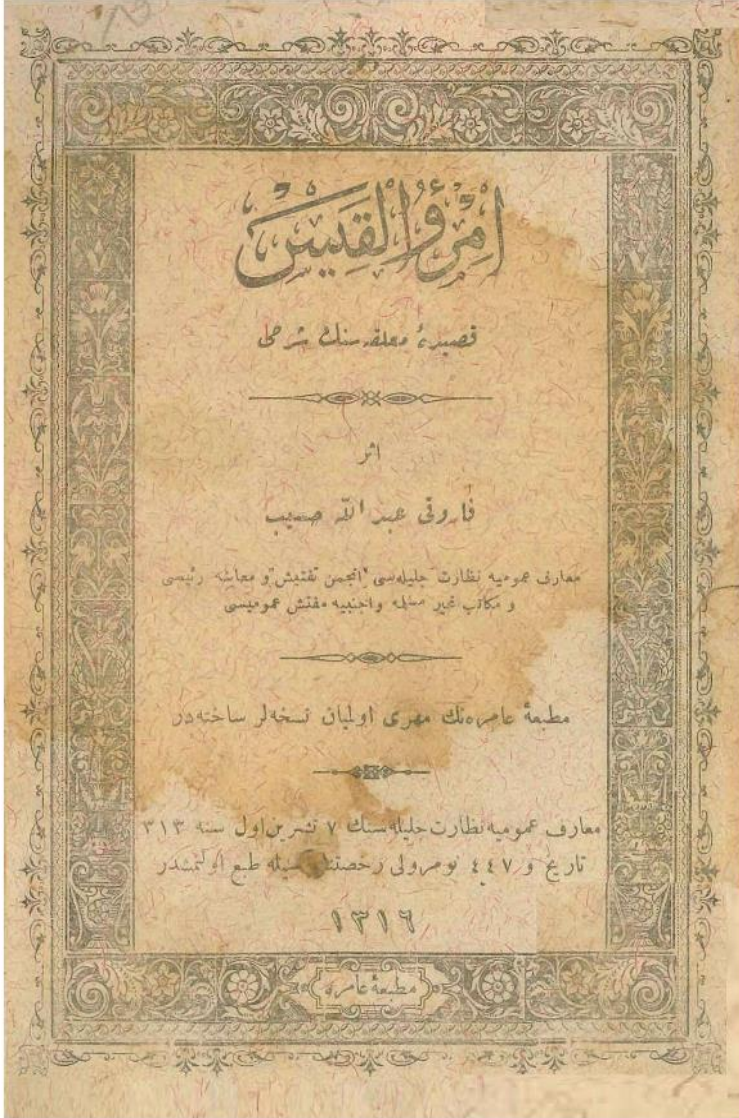 امرؤ القيس
قصيدهٔ معلقه سنك شرحی
اثر
فاروقی عبد الله حسيب
معارف عموميه نظارت جليله سی "انجمن تفتيش" و معاينه رئيسی
و مكاتب غير مسلمه و اجنبيه مفتش عموميسی
مطبعهٔ عامره نك مهری اولميان نسخه لر ساخته در
معارف عموميه نظارت جليله سنك ٧ تشرين اول سنه ٣١٣
تاريخ و ٤٤٧ نومرولی رخصتنامه سيله طبع اولنمشدر
١٣١٦
مطبعهٔ عامره